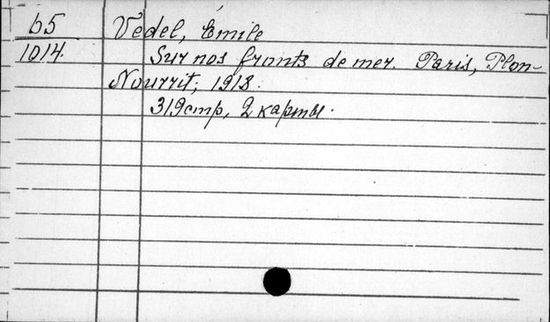 65 Vedel, Émile
1014. Sur nos fronts de mer. Paris, Plon-
Nourrit, 1918.
319стр, 2 карты.